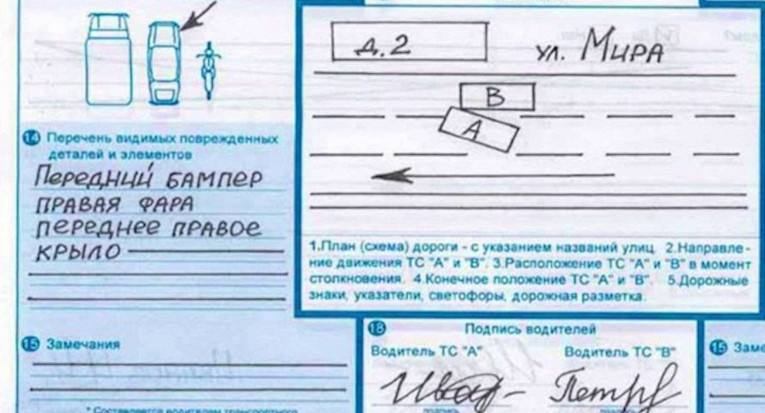 д.2
ул. Мира
В
А
14 Перечень видимых поврежденных
деталей и элементов
Передний бампер
правая фара
переднее правое
крыло
1.План (схема) дороги - с указанием названий улиц. 2.Направле-
ние движения ТС "А" и "В". 3.Расположение ТС "А" и "В" в момент
столкновения. 4.Конечное положение ТС "А" и "В". 5.Дорожные
знаки, указатели, светофоры, дорожная разметка.
15 Замечания
18 Подпись водителей
Водитель ТС "А" Водитель ТС "В"
Петров
подпись
* Составляется водителем транспортного
15 Заме